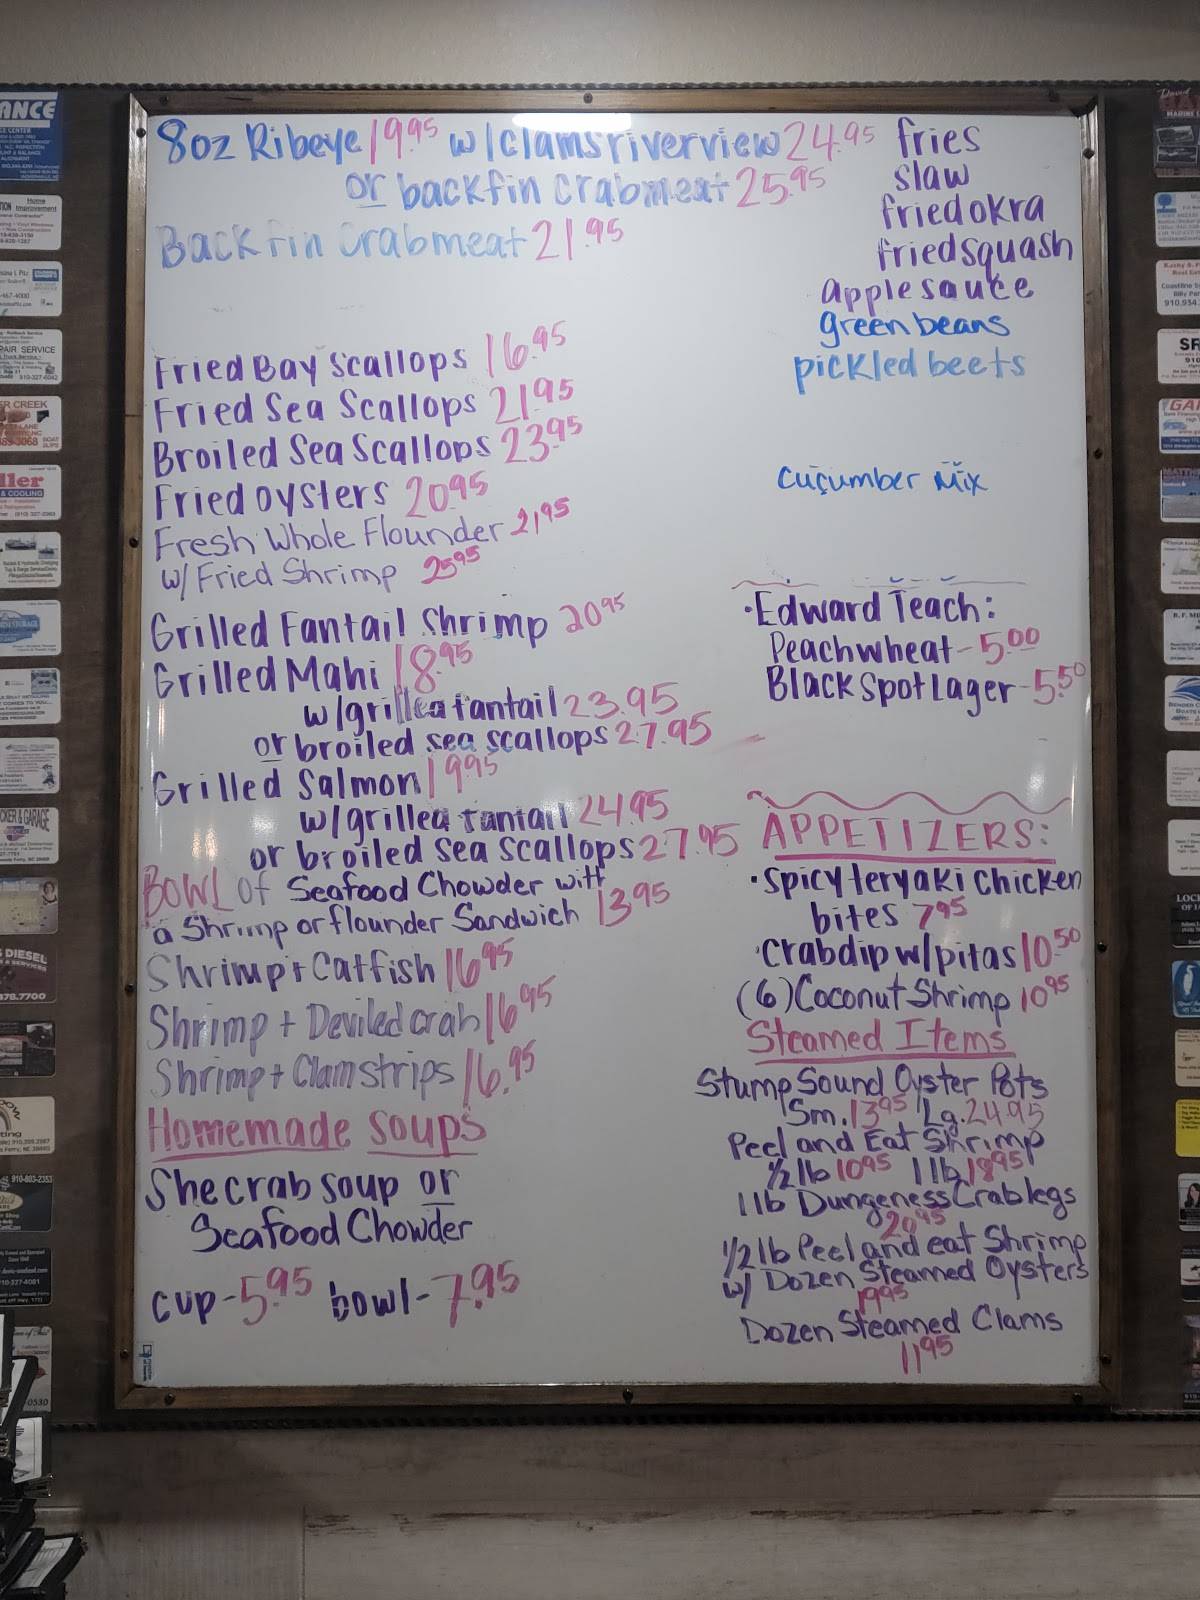 8oz Ribeye 19.95 w/clams riverview 24.95
or backfin crabmeat 25.95
Backfin Crabmeat 21.95
Fried Bay Scallops 16.95
Fried Sea Scallops 21.95
Broiled Sea Scallops 23.95
Fried oysters 20.95
Fresh Whole Flounder 21.95
w/ Fried Shrimp 25.95
Grilled Fantail Shrimp 20.95
Grilled Mahi 18.95
w/grilled fantail 23.95
or broiled sea scallops 27.95
Grilled Salmon 19.95
w/grilled fantail 24.95
or broiled sea scallops 27.95
Bowl of Seafood Chowder with
a Shrimp or flounder Sandwich 13.95
Shrimp + Catfish 16.95
Shrimp + Deviled crab 16.95
Shrimp + Clamstrips 16.95
Homemade Soups
She crab soup or
Seafood Chowder
cup - 5.95 bowl - 7.95
fries
slaw
fried okra
fried squash
applesauce
green beans
pickled beets
cucumber Mix
· Edward Teach:
Peachwheat - 5.00
Black Spot Lager - 5.50
APPETIZERS:
· Spicy teryaki chicken
bites 7.95
· crabdip w/pitas 10.50
(6) Coconut Shrimp 10.95
Steamed Items
Stump Sound Oyster Pots
Sm. 13.95 Lg. 24.95
Peel and Eat Shrimp
1/2 lb 10.95 1 lb 18.95
1 lb Dungeness Crab legs
20.95
1/2 lb Peel and eat Shrimp
w/ Dozen Steamed Oysters
19.95
Dozen Steamed Clams
11.95